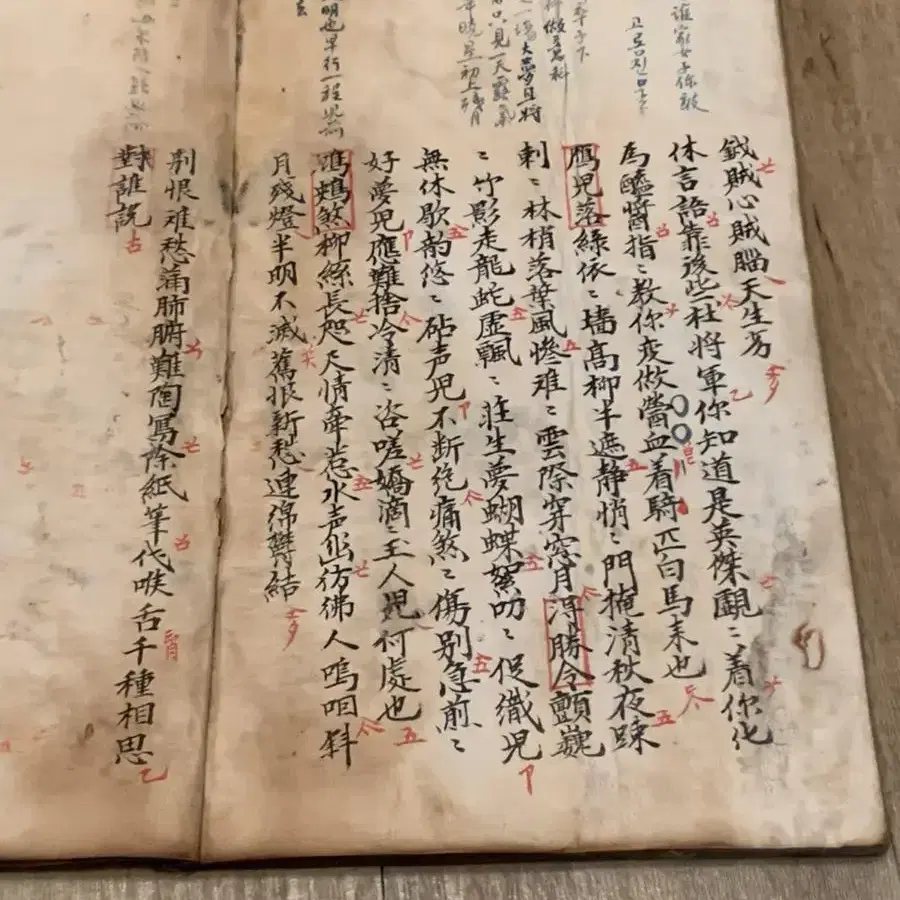 誰家女子你敢
大夢且將
只見一天露氣
曉星初上殘月
明也早行一程
鉞賊心賊腦天生劣
休言語靠後些杜將軍你知道是英傑覷〻着你化
爲醯醬指〻教你変做血着騎匹白馬耒也
鴈兒落綠依〻墻高柳半遮静悄〻門掩清秋夜踈
剌〻林梢落葉風慘难〻雲際穿窓月淂勝令顫巍
〻竹影走龍蛇虛飄〻莊生夢蝴蝶絮叨〻促織兒
無休歇韵悠〻砧声兒不断绝痛煞〻傷别急煎〻
好夢兒應難捨冷清〻咨嗟嬌滴〻玉人兒何處也
鴛鴦煞柳絲長咫尺情牽惹水声幽彷彿人嗚咽斜
月殘燈半明不滅舊恨新愁連綿鬱結
别恨难愁滿肺腑難陶寫除紙筆代喉舌千種相思
對誰説